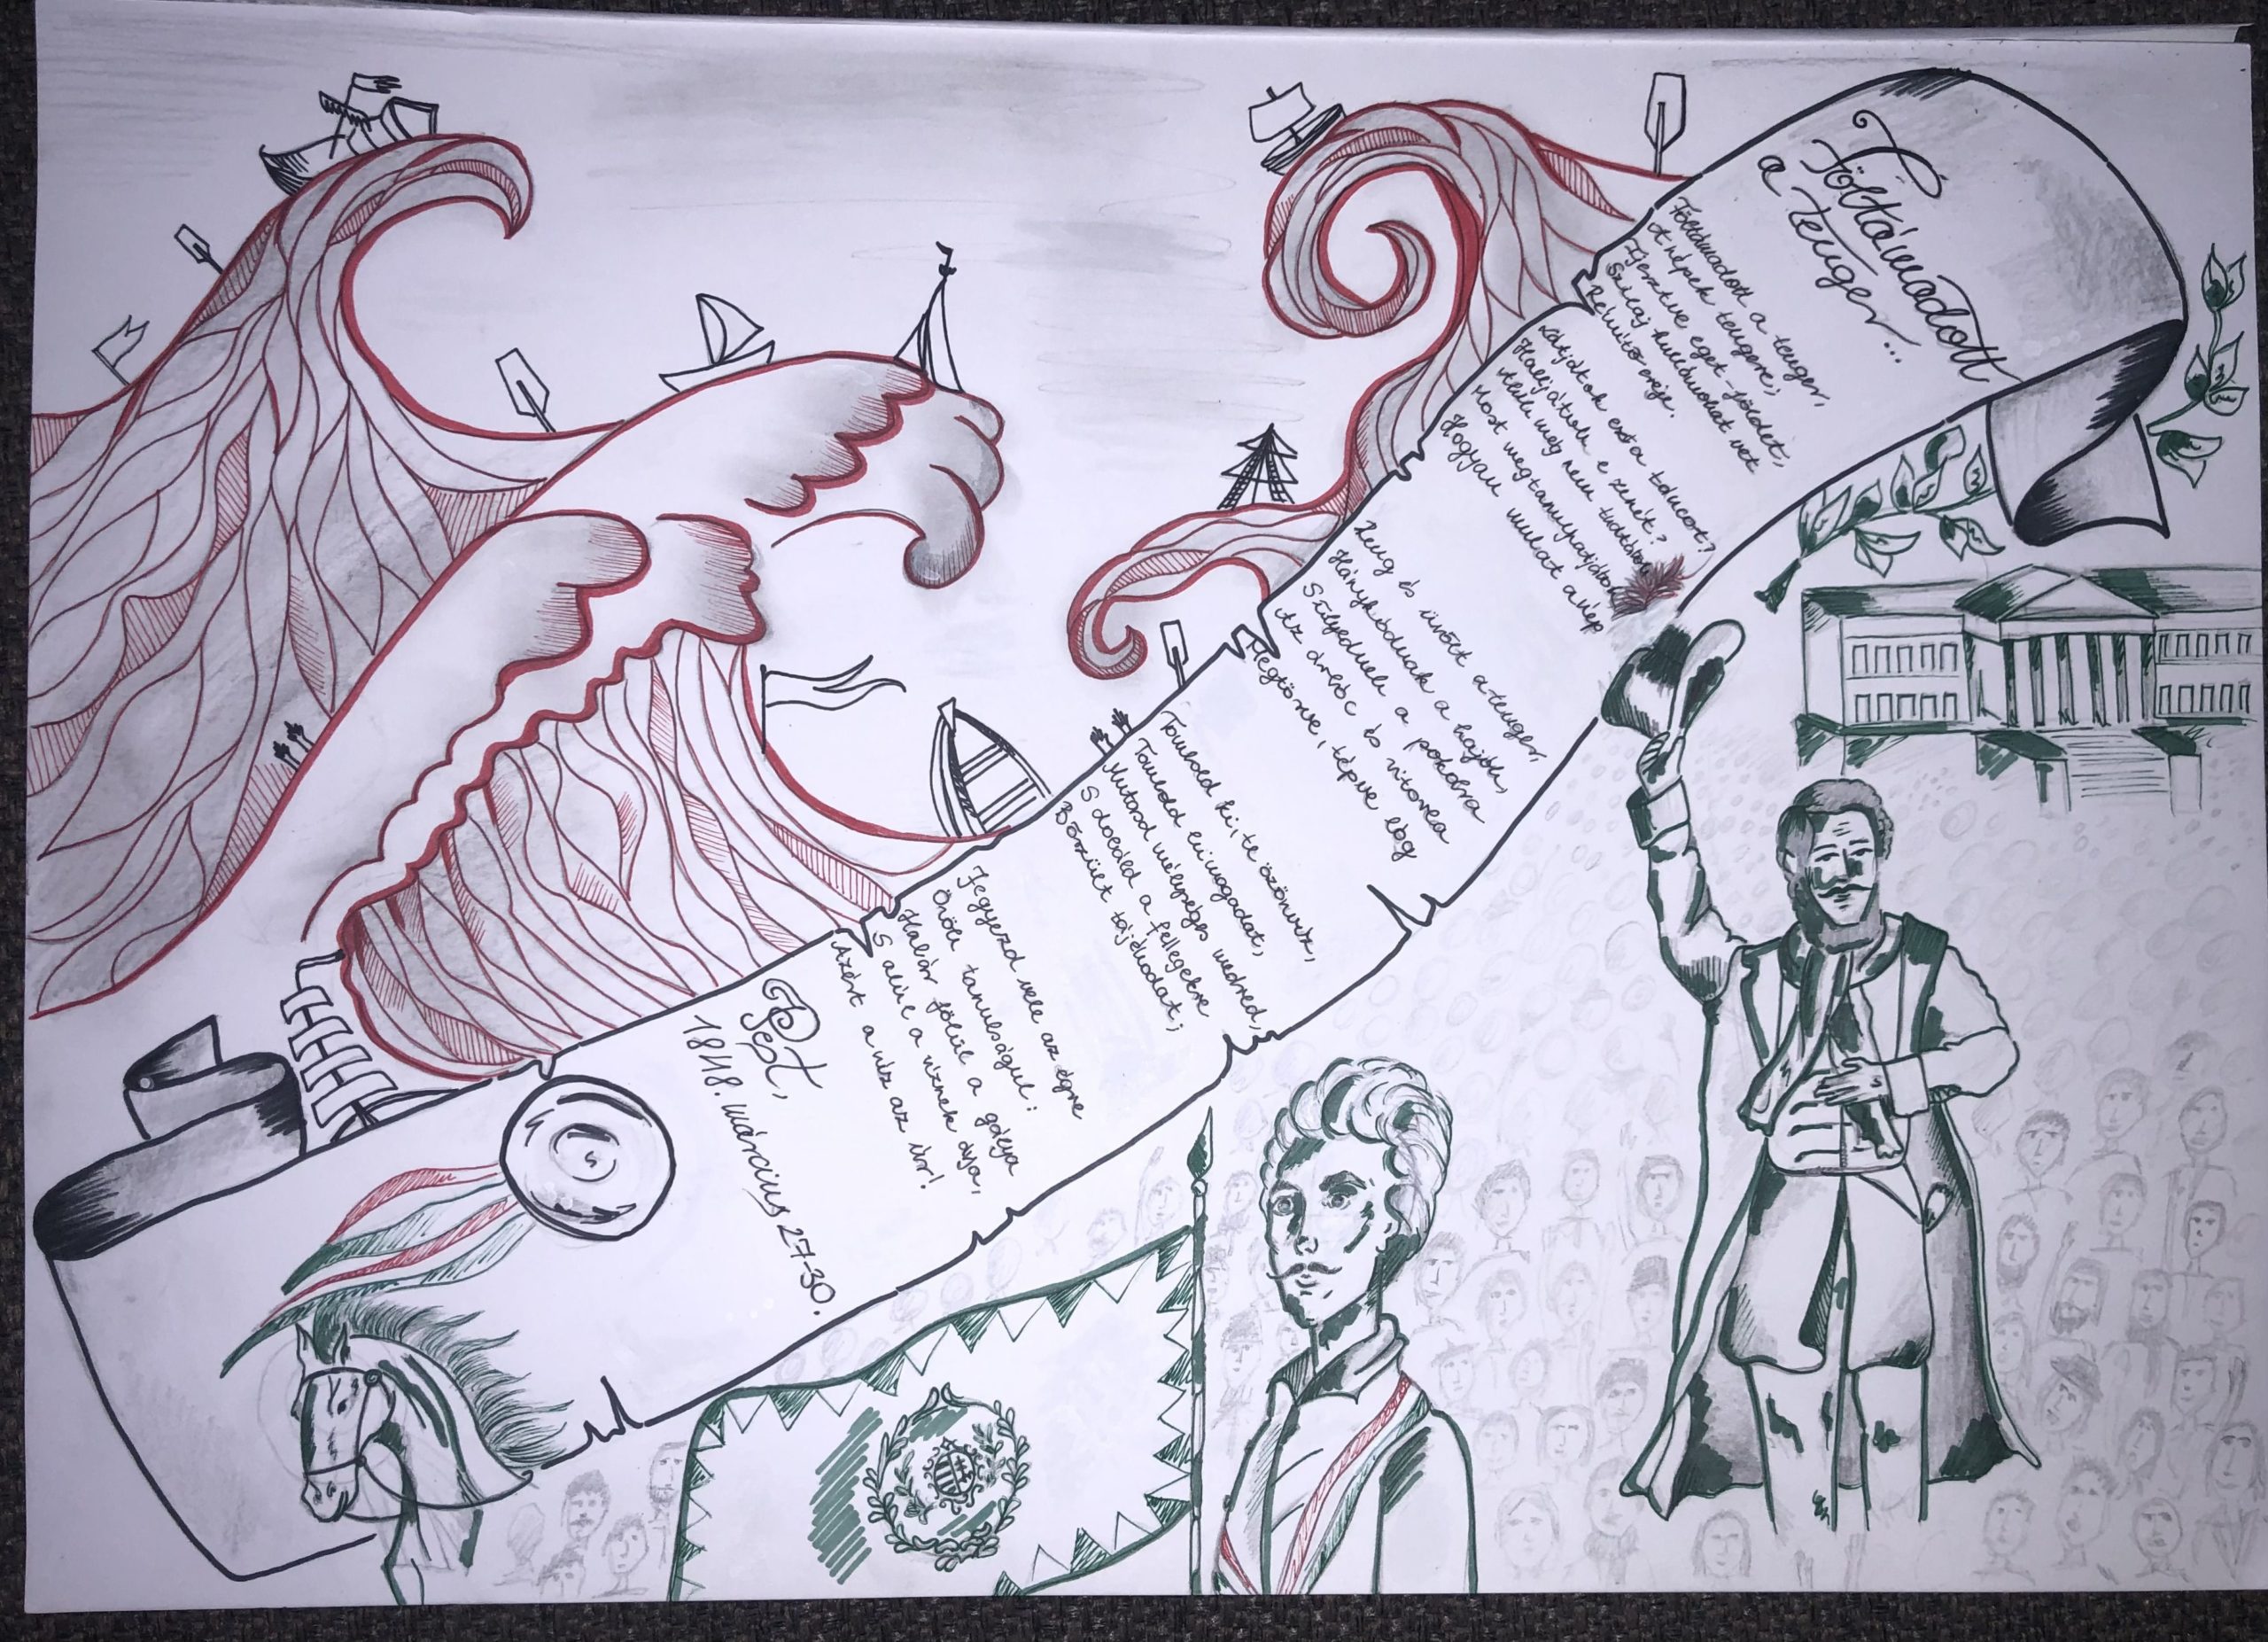 Föltámadott
a tenger...
Föltámadott a tenger,
A népek tengere;
Ijesztve eget-földet,
Szilaj hullámokat vet
Rémítő ereje.
Látjátok ezt a táncot?
Halljátok e zenét?
Akik még nem tudtátok,
Most megtanulhatjátok,
Hogyan mulat a nép
Zeng és üvölt a tenger,
Hánykódnak a hajók,
Sűlyednek a pokolra
Az árbóc és vitorla
Megtörve, tépve lóg
Tombold ki, te özönvíz,
Tombold ki magadat,
Mutasd mélységes medred,
S dobáld a fellegekre
Bőszült tajtékodat;
Jegyezd vele az égre
Örök tanulságul:
Habár fölűl a gálya
S alúl a víznek árja,
Azért a víz az úr!
Pest,
1848. március 27-30.